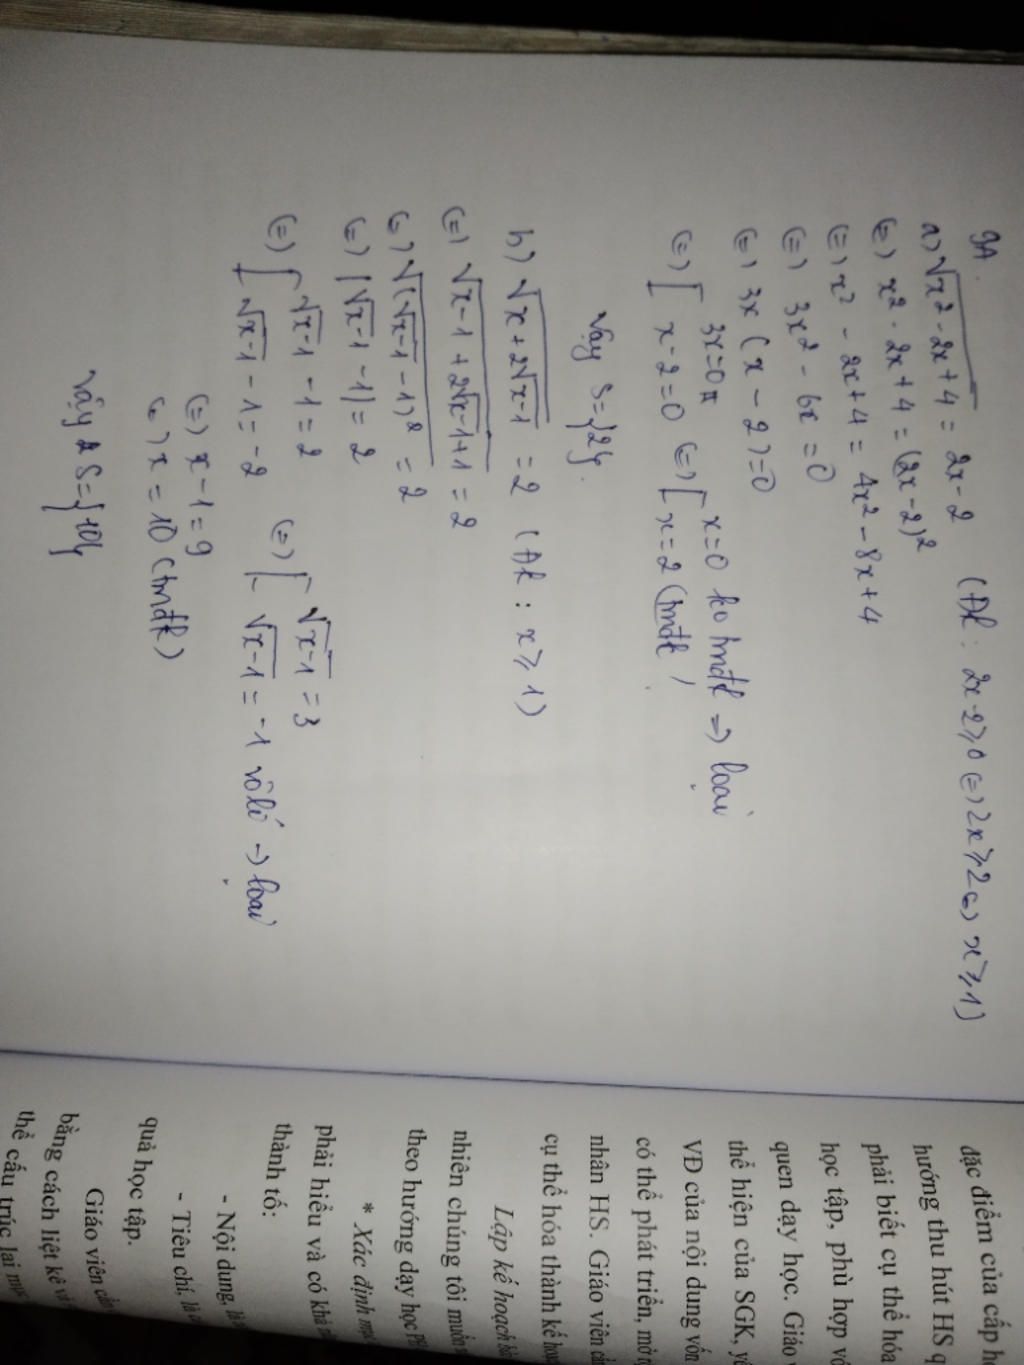 9A.
a) √x² - 2x + 4 = 2x - 2 (Đk : 2x - 2 ≥ 0 (=) 2x ≥ 2 (=) x ≥ 1)
(=) x² - 2x + 4 = (2x - 2)²
(=) x² - 2x + 4 = 4x² - 8x + 4
(=) 3x² - 6x = 0
(=) 3x (x - 2) = 0
(=) [ 3x = 0
x - 2 = 0 (=) [ x = 0 ko tmđk => loại
x = 2 (tmđk)
Vậy S = {2}.
b) √x + 2√x-1 = 2 (Đk : x ≥ 1)
(=) √x-1 + 2√x-1 + 1 = 2
(=) √(√x-1 - 1)² = 2
(=) |√x-1 - 1| = 2
(=) [ √x-1 - 1 = 2
√x-1 - 1 = -2 (=) [ √x-1 = 3
√x-1 = -1 vô lí -> loại
(=) x - 1 = 9
(=) x = 10 (tmđk)
Vậy S = {10}
đặc điểm của cấp
hướng thu hút HS
phải biết cụ thể hóa
học tập, phù hợp
quen dạy học. Giáo
thể hiện của SGK,
VĐ của nội dung vốn
có thể phát triển, mở
nhân HS. Giáo viên
cụ thể hóa thành kế
Lập kế hoạch
nhiên chúng tôi muốn
theo hướng dạy học
* Xác định
phải hiểu và có
thành tố:
- Nội dung,
- Tiêu chí,
quả học tập.
Giáo viên
bằng cách liệt kê
thể cấu trúc lại